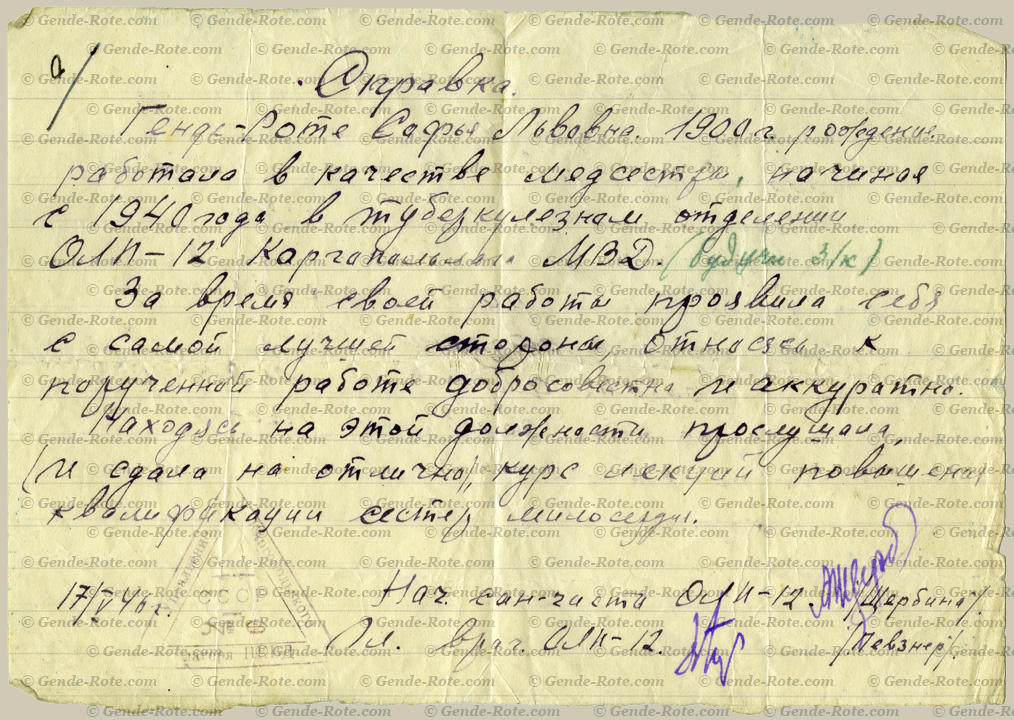 а/
Справка.
Генде-Роте Софья Львовна. 1900 г. рождения
работала в качестве медсестры, начиная
с 1940 года в туберкулезном отделении
ОЛП-12 МВД. (будучи з/к)
За время своей работы проявила себя
с самой лучшей стороны, относясь к
порученной работе добросовестно и аккуратно.
Находясь на этой должности прослушала
(и сдала на отлично) курс лекций повышения
квалификации сестер милосердия.
Нач. сан-части ОЛП-12 /Щербина/.
Гл. врач. ОЛП-12. /Певзнер/.
СССР
© Gende-Rote.com